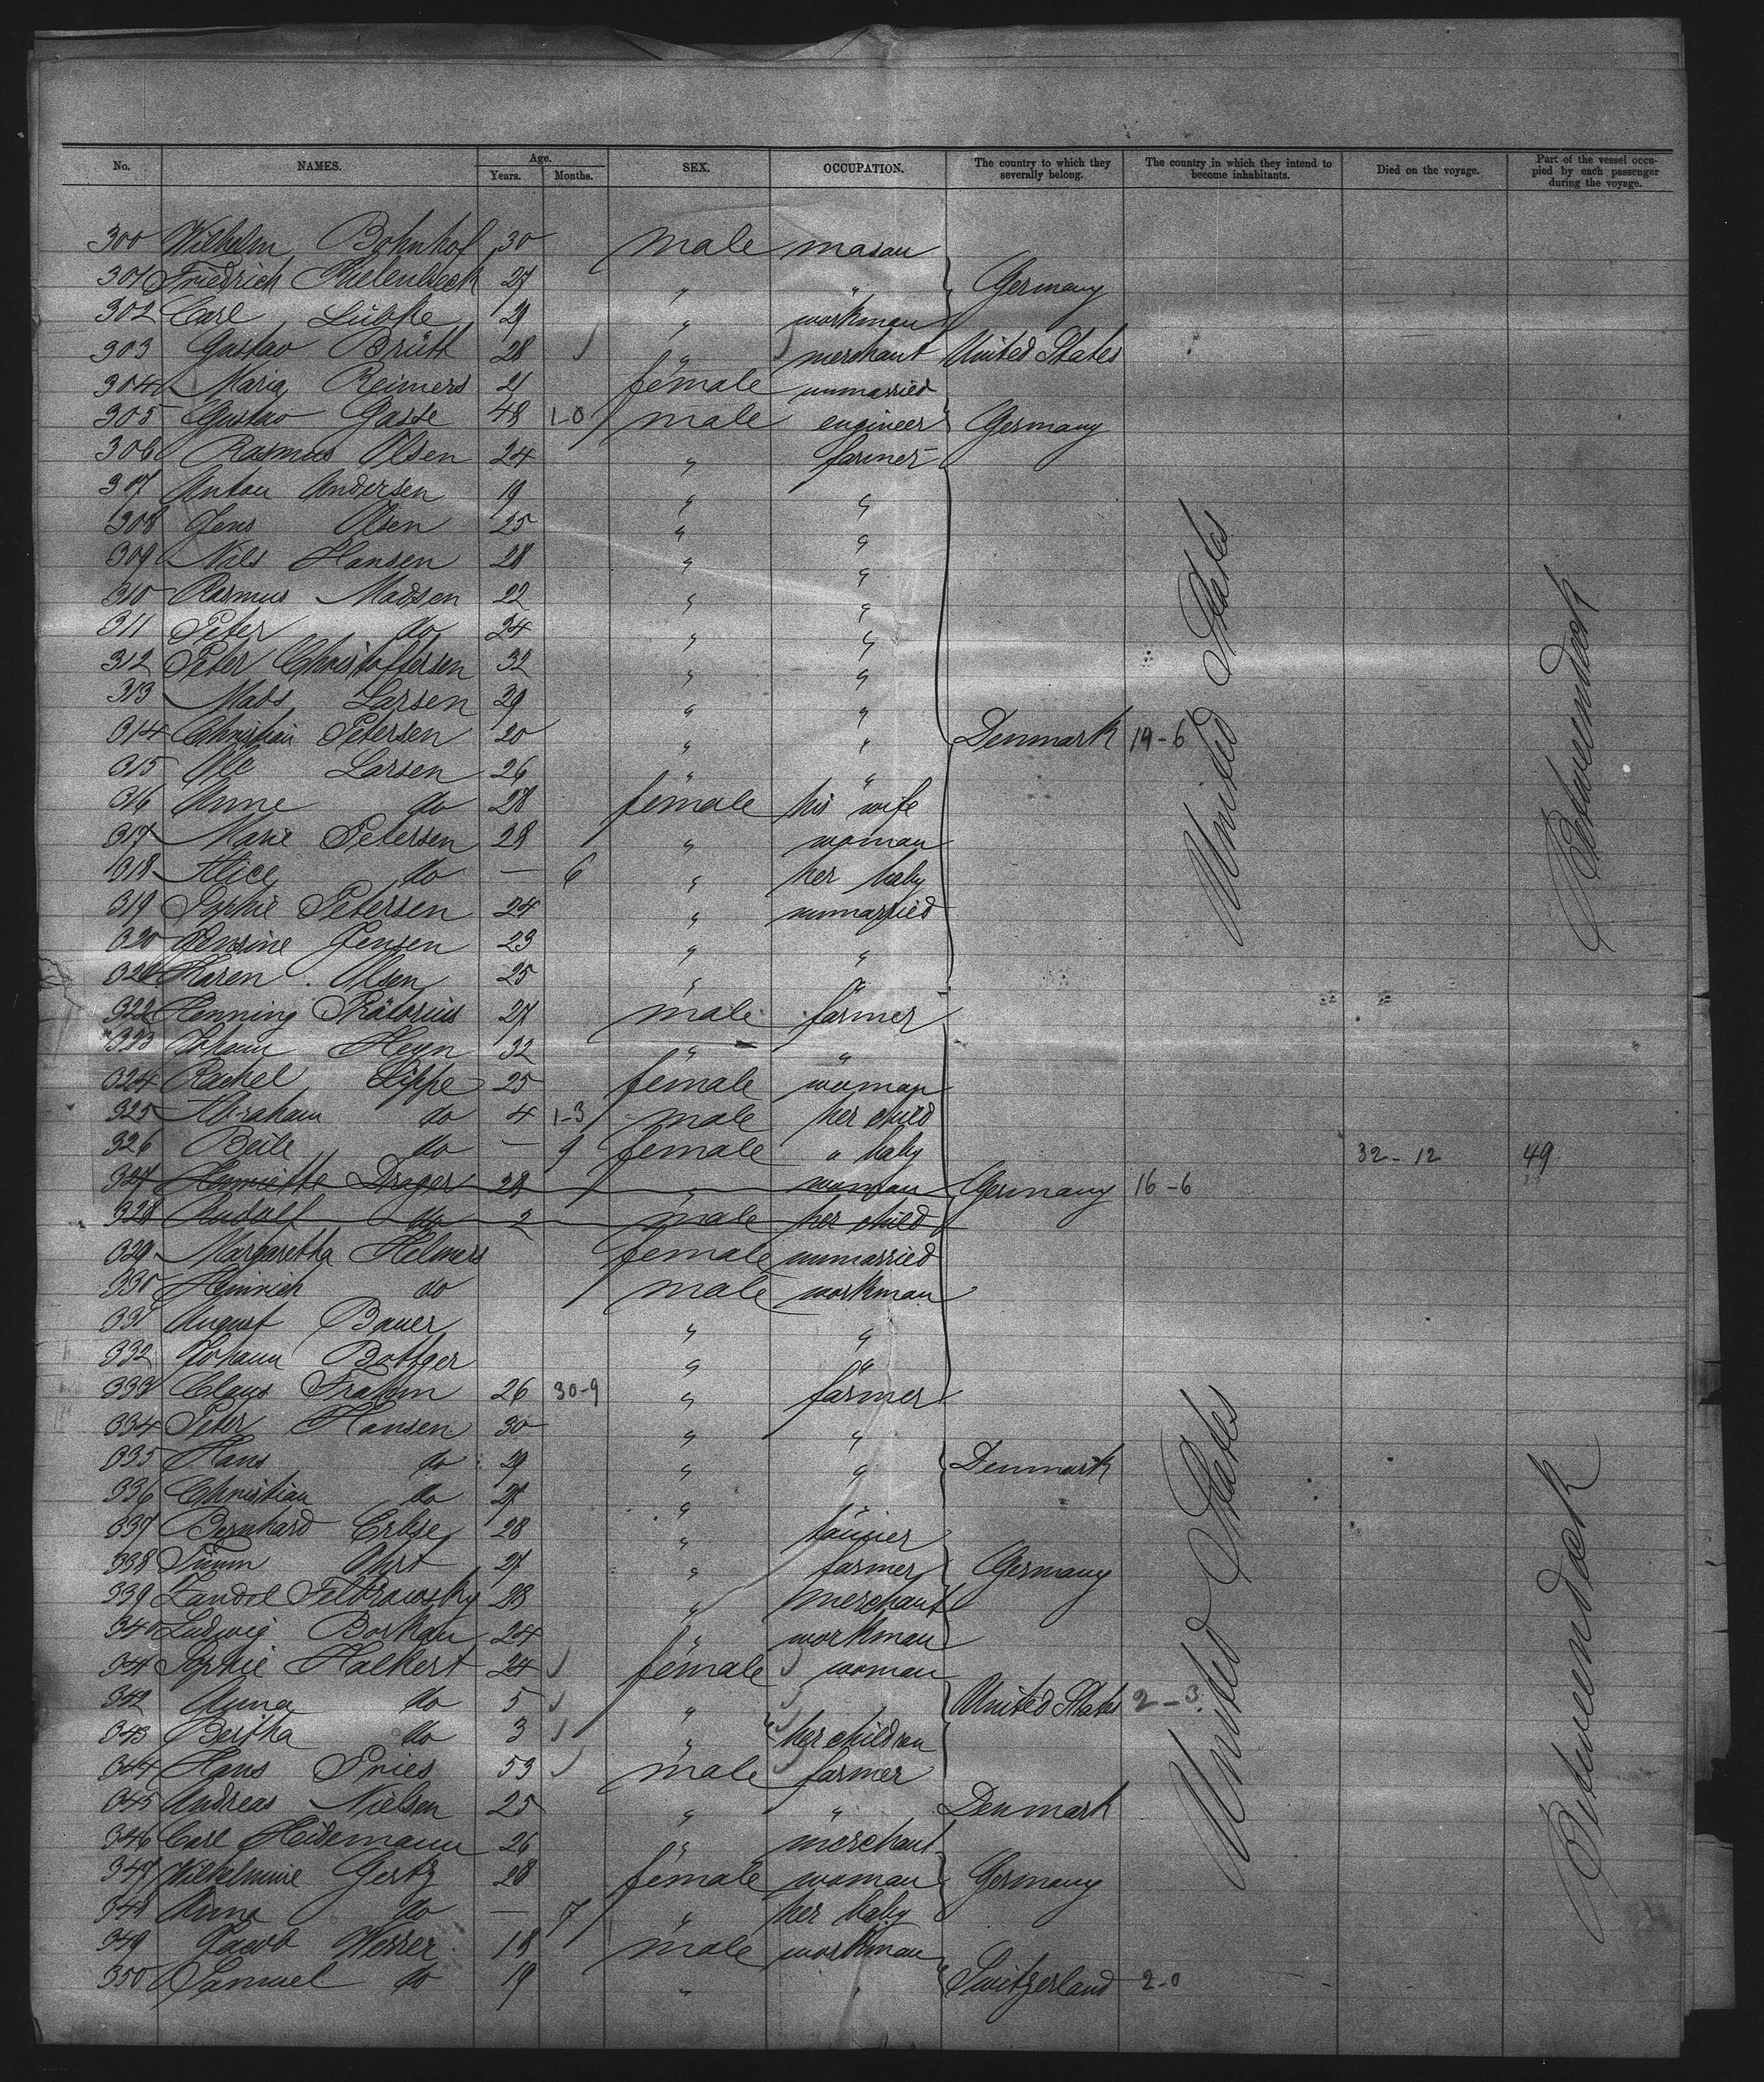 No. NAMES. Age. Years. Months. SEX. OCCUPATION. The country to which they severally belong. The country in which they intend to become inhabitants. Died on the voyage. Part of the vessel occupied by each passenger during the voyage.
300 Wilhelm Bohnhof 30 male mason
301 Friedrich Thielenbeck 27 " " Germany
302 Carl Lübke 29 " workman
303 Gustav Brütt 28 " merchant United States
304 Maria Reimers 21 female unmarried
305 Gustav Gasse 48 1-0 male engineer Germany
306 Rasmus Olsen 24 " farmer
307 Anton Andersen 19 " "
308 Jens Olsen 25 " "
309 Nils Hansen 28 " "
310 Rasmus Madsen 22 " "
311 Peter do 24 " "
312 Peter Christoffersen 32 " "
313 Mads Larsen 29 " "
314 Christian Petersen 20 " " Denmark 14-6 United States Betweendeck
315 Ole Larsen 26 " "
316 Anne do 28 female his wife
317 Marie Petersen 28 " woman
318 Alice do — 6 " her baby
319 Sophie Petersen 24 " unmarried
320 Jensine Jensen 23 " "
321 Karen Olsen 25 " "
322 Henning Prätorius 27 male farmer
323 Johann Heyn 32 " "
324 Rachel Lippe 25 female woman
325 Abraham do 4 1-3 male her child
326 Beile do — 9 female " baby 32-12 49
327 Henriette Dreger 28 " woman Germany 16-6
328 Rudolf do 2 male her child
329 Margaretha Helmers female unmarried
330 Heinrich do male workman
331 August Bauer " "
332 Johann Bottger " "
333 Claus Frahm 26 30-9 " farmer
334 Peter Hansen 30 " "
335 Hans do 29 " " Denmark
336 Christian do 27 "
337 Bernhard Erbse 28 "
338 Timm Ohrt 27 " farmer Germany
339 28 " merchant
340 Ludwig 24 " workman
341 Sophie Halkert 24 female woman
342 Anna do 5 " " United States 2-3 United States Betweendeck
343 Bertha do 3 " her children
344 Hans Pries 53 male farmer
345 Andreas Nielsen 25 " " Denmark
346 Carl Heidemann 26 " merchant
347 Wilhelmine Gertz 28 female woman Germany
348 Anna do — 7 " her baby
349 Jacob 18 male workman
350 Samuel do 19 " " Switzerland 2-0